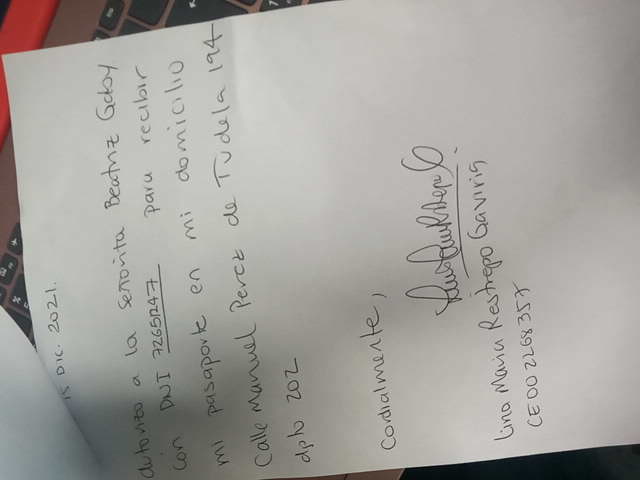 15 Dic. 2021.
Autorizo a la señorita Beatriz Gaby
con DNI 7265R47 para recibir
mi pasaporte en mi domicilio
Calle Manuel Perez de Tudela 194
dpto 202
Cordialmente,
Lina Maria Restrepo Gaviria
CE002268357